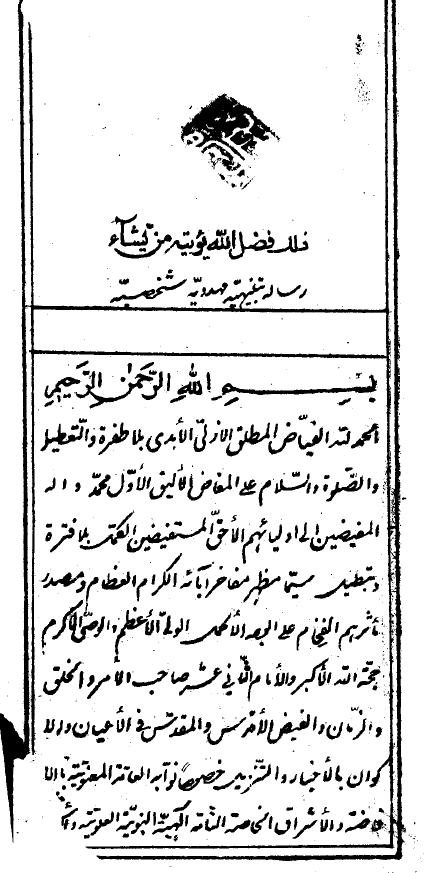 ذلك فضل الله يؤتيه من يشآء
رساله تنبيهيّه مهدويّه شخصيّه
بسم الله الرّحمن الرّحيم
الحمد لله الفيّاض المطلق الازلى الأبدى بلا طفرة والتّعطيل
والصّلوة والسّلام على المفاض الأليق الأوّل محمّد واله
المفيضين الى اوليائهم الأحقّ المستفيضين الكمّل بلا فترة
وتبطيل سيّما مظهر مفاخر آبائه الكرام العظام ومصدر
مآثرهم الفخام على الوجه الأكمل الولىّ الأعظم والوصىّ الأكرم
حجّة الله الأكبر والأمام الثّانى عشر صاحب الأمر والخلق
والزّمان والفيض الأقدس والمقدّس فى الأعيان والا
كوان بالأخبار والتّنزيل خصوصاً نوّابه العامّة المعنويّة بالا
فاضة والأشراق الخاصّة التّامّة الٓهيّة النبويّة العلويّة